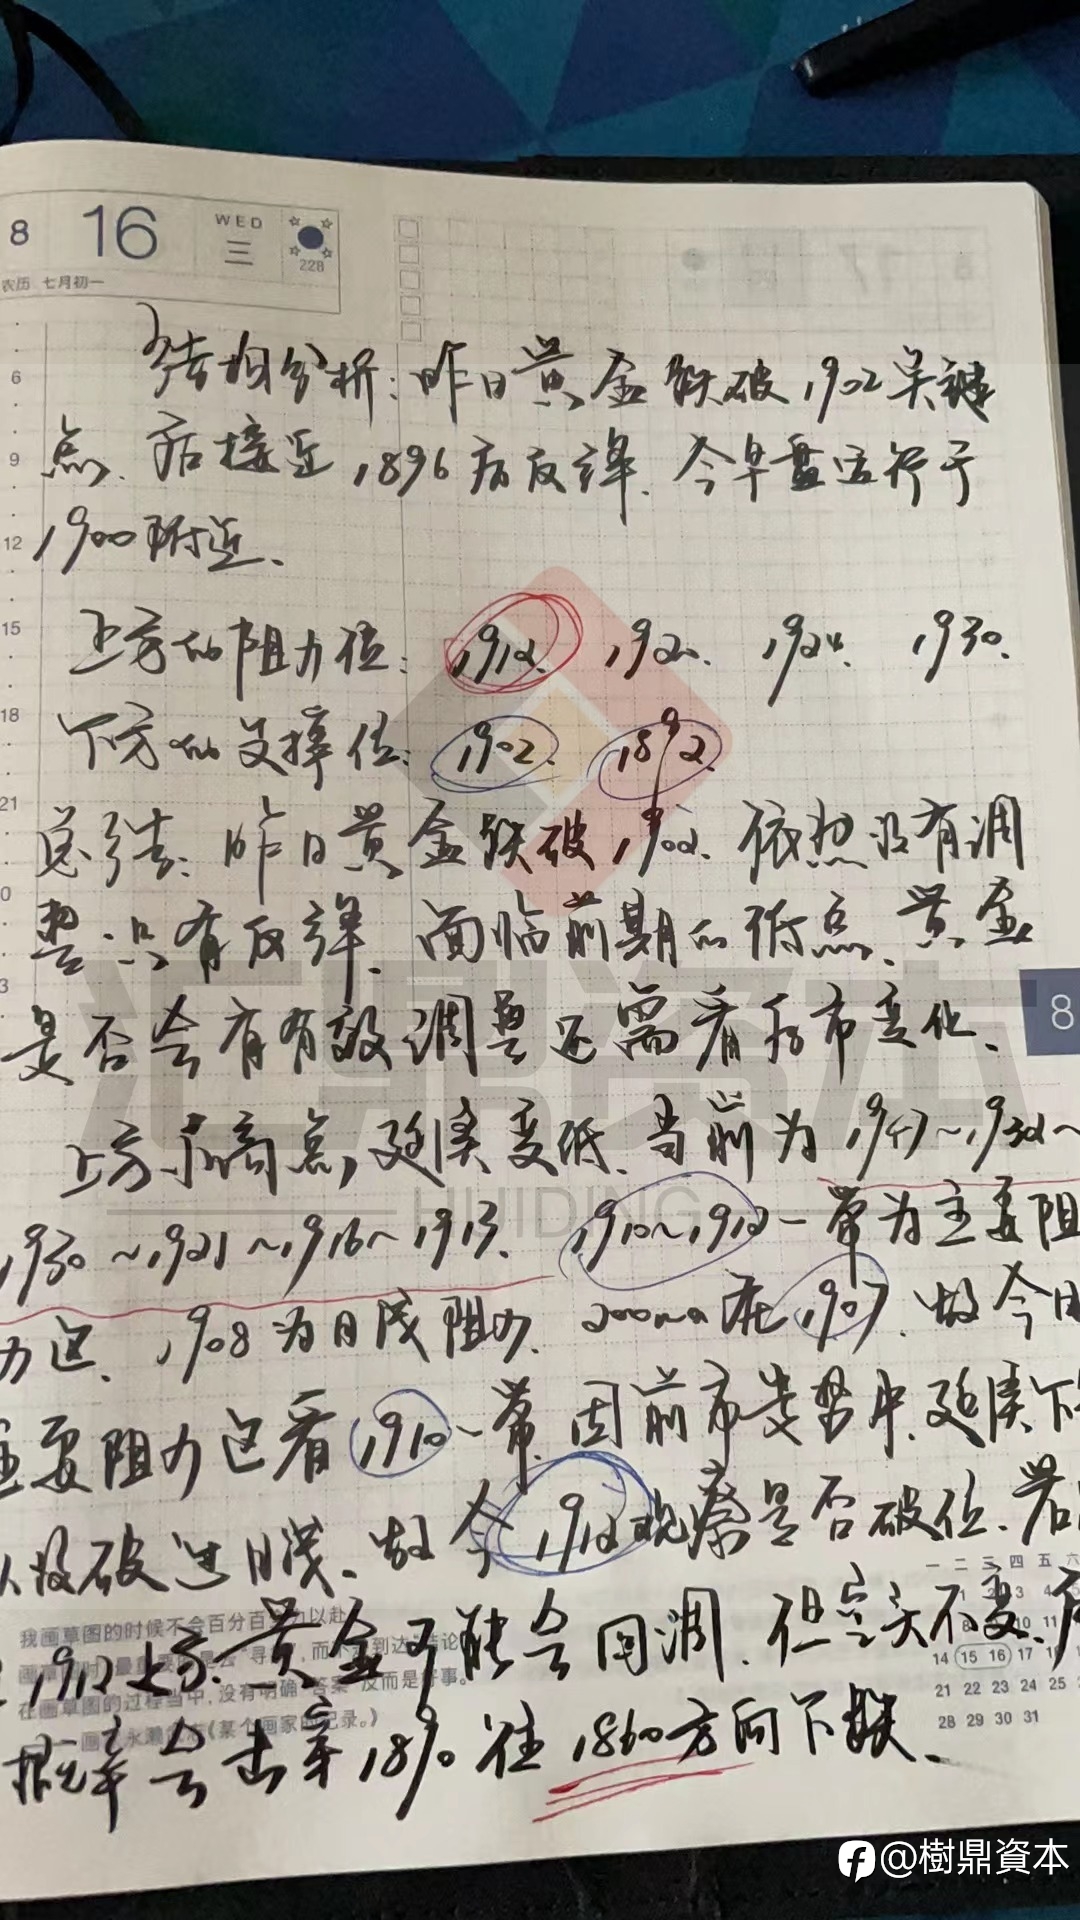 8 16 WED 三 228
农历 七月初一
结构分析：昨日黄金跌破1902关键
点、后接近1896后反弹、今早盘运行于
1900附近、
上方的阻力位：1912、1920、1924、1930、
下方的支撑位：1902、1892、
总结：昨日黄金跌破1902、依然没有调
整、只有反弹、面临前期的低点、黄金
是否会有有效调整还需看后市变化、
上方示高点，延续变低、当前为1947~1932~
1930~1921~1916~1913、1910~1912一带为主要阻
力区、1908为日线阻力、200ma在1907、故今日
主要阻力区看1910一带、因前市走势中，延续下
没破过日线、故今1912观察是否破位、若
1912上方、黄金可能会回调、但空头不变、
概率会击穿1890往1860方向下跌、
6
9
12
15
18
21
0
3
8
我画草图的时候不会百分百 力以赴
画草图 时 最重要的是去“寻 ，而不 到达“结论
在画草图的过程当中，没有明确“答案”反而是好事。
画 永濑 （某个画家的记录。）
一 二 三 四 五 六
14 15 16 17
21 22 23 24 25
28 29 30 31
汇鼎资本
HUIDING
@樹鼎資本